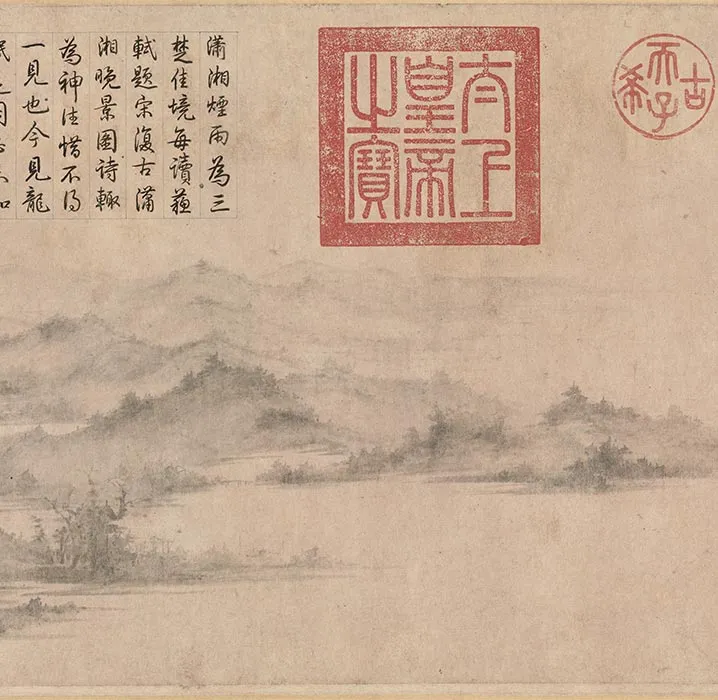 古希天子
太上
皇帝
之寶
瀟湘煙雨為三
楚佳境每讀蘇
軾題宋復古瀟
湘晚景圖詩輙
為神往惜不得
一見也今見龍